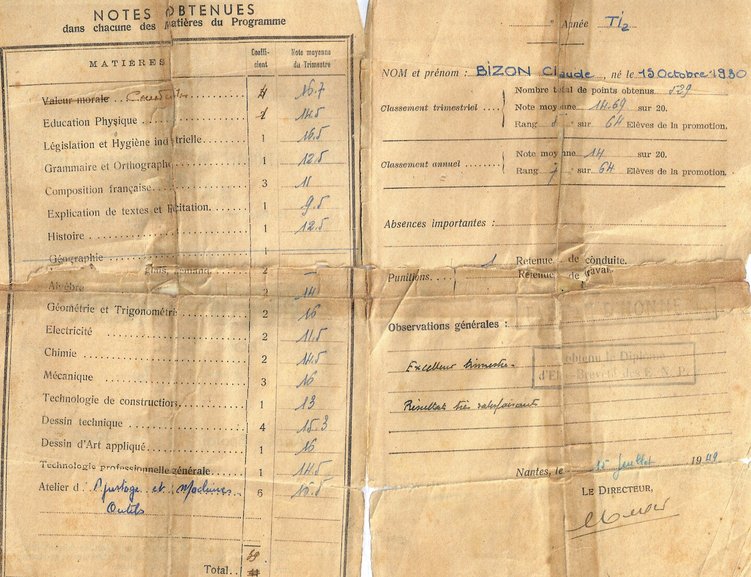 NOTES OBTENUES
dans chacune des Matières du Programme
MATIÈRES
Coeffi-
cient
Note moyenne
du Trimestre
Valeur morale 4 16.7
Education Physique 1 14.5
Législation et Hygiène industrielle 1 16.5
Grammaire et Orthographe 1 12.5
Composition française 3 11
Explication de textes et Récitation 1 9.5
Histoire 1 12.5
Géographie 1
2 —
Algèbre 2 14
Géométrie et Trigonométrie 2 16
Electricité 2 11.5
Chimie 2 14.5
Mécanique 3 16
Technologie de construction 1 13
Dessin technique 4 15.3
Dessin d'Art appliqué 1 16
Technologie professionnelle générale 1 14.5
Atelier d'Ajustage et Machines 6 15.5
Outils
Total
Année Ti2
NOM et prénom : BIZON Claude, né le 15 Octobre 1930
Nombre total de points obtenus 529
Classement trimestriel Note moyenne 14.69 sur 20.
Rang sur 64 Elèves de la promotion.
Note moyenne 14 sur 20.
Classement annuel
Rang 7 sur 64 Elèves de la promotion.
Absences importantes :
1 Retenue de conduite.
Punitions
Retenue de travail.
Observations générales :
obtenu le Diplôme
d'Elève Breveté des E. N. P.
Excellent trimestre.
Résultats très satisfaisants
Nantes, le 15 juillet 1949
LE DIRECTEUR,